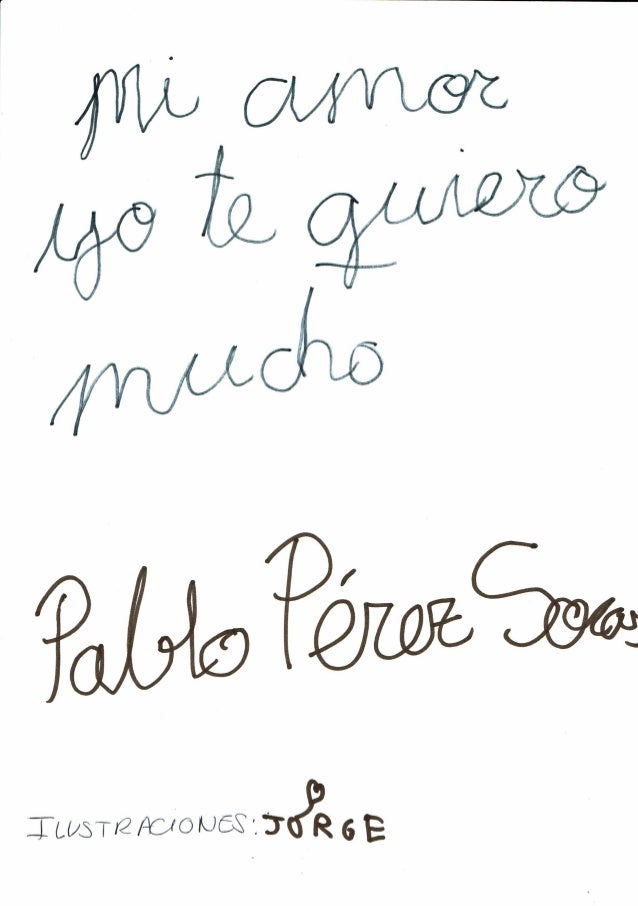 mi amor
yo te quiero
mucho
Pablo Pérez Socas
ILUSTRACIONES: JORGE